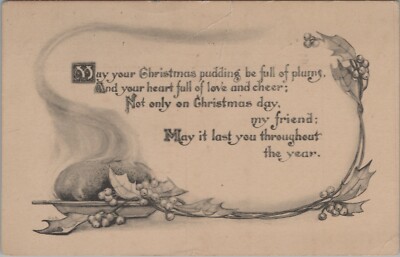 May your Christmas pudding be full of plums,
And your heart full of love and cheer;
Not only on Christmas day,
my friend;
May it last you throughout
the year.